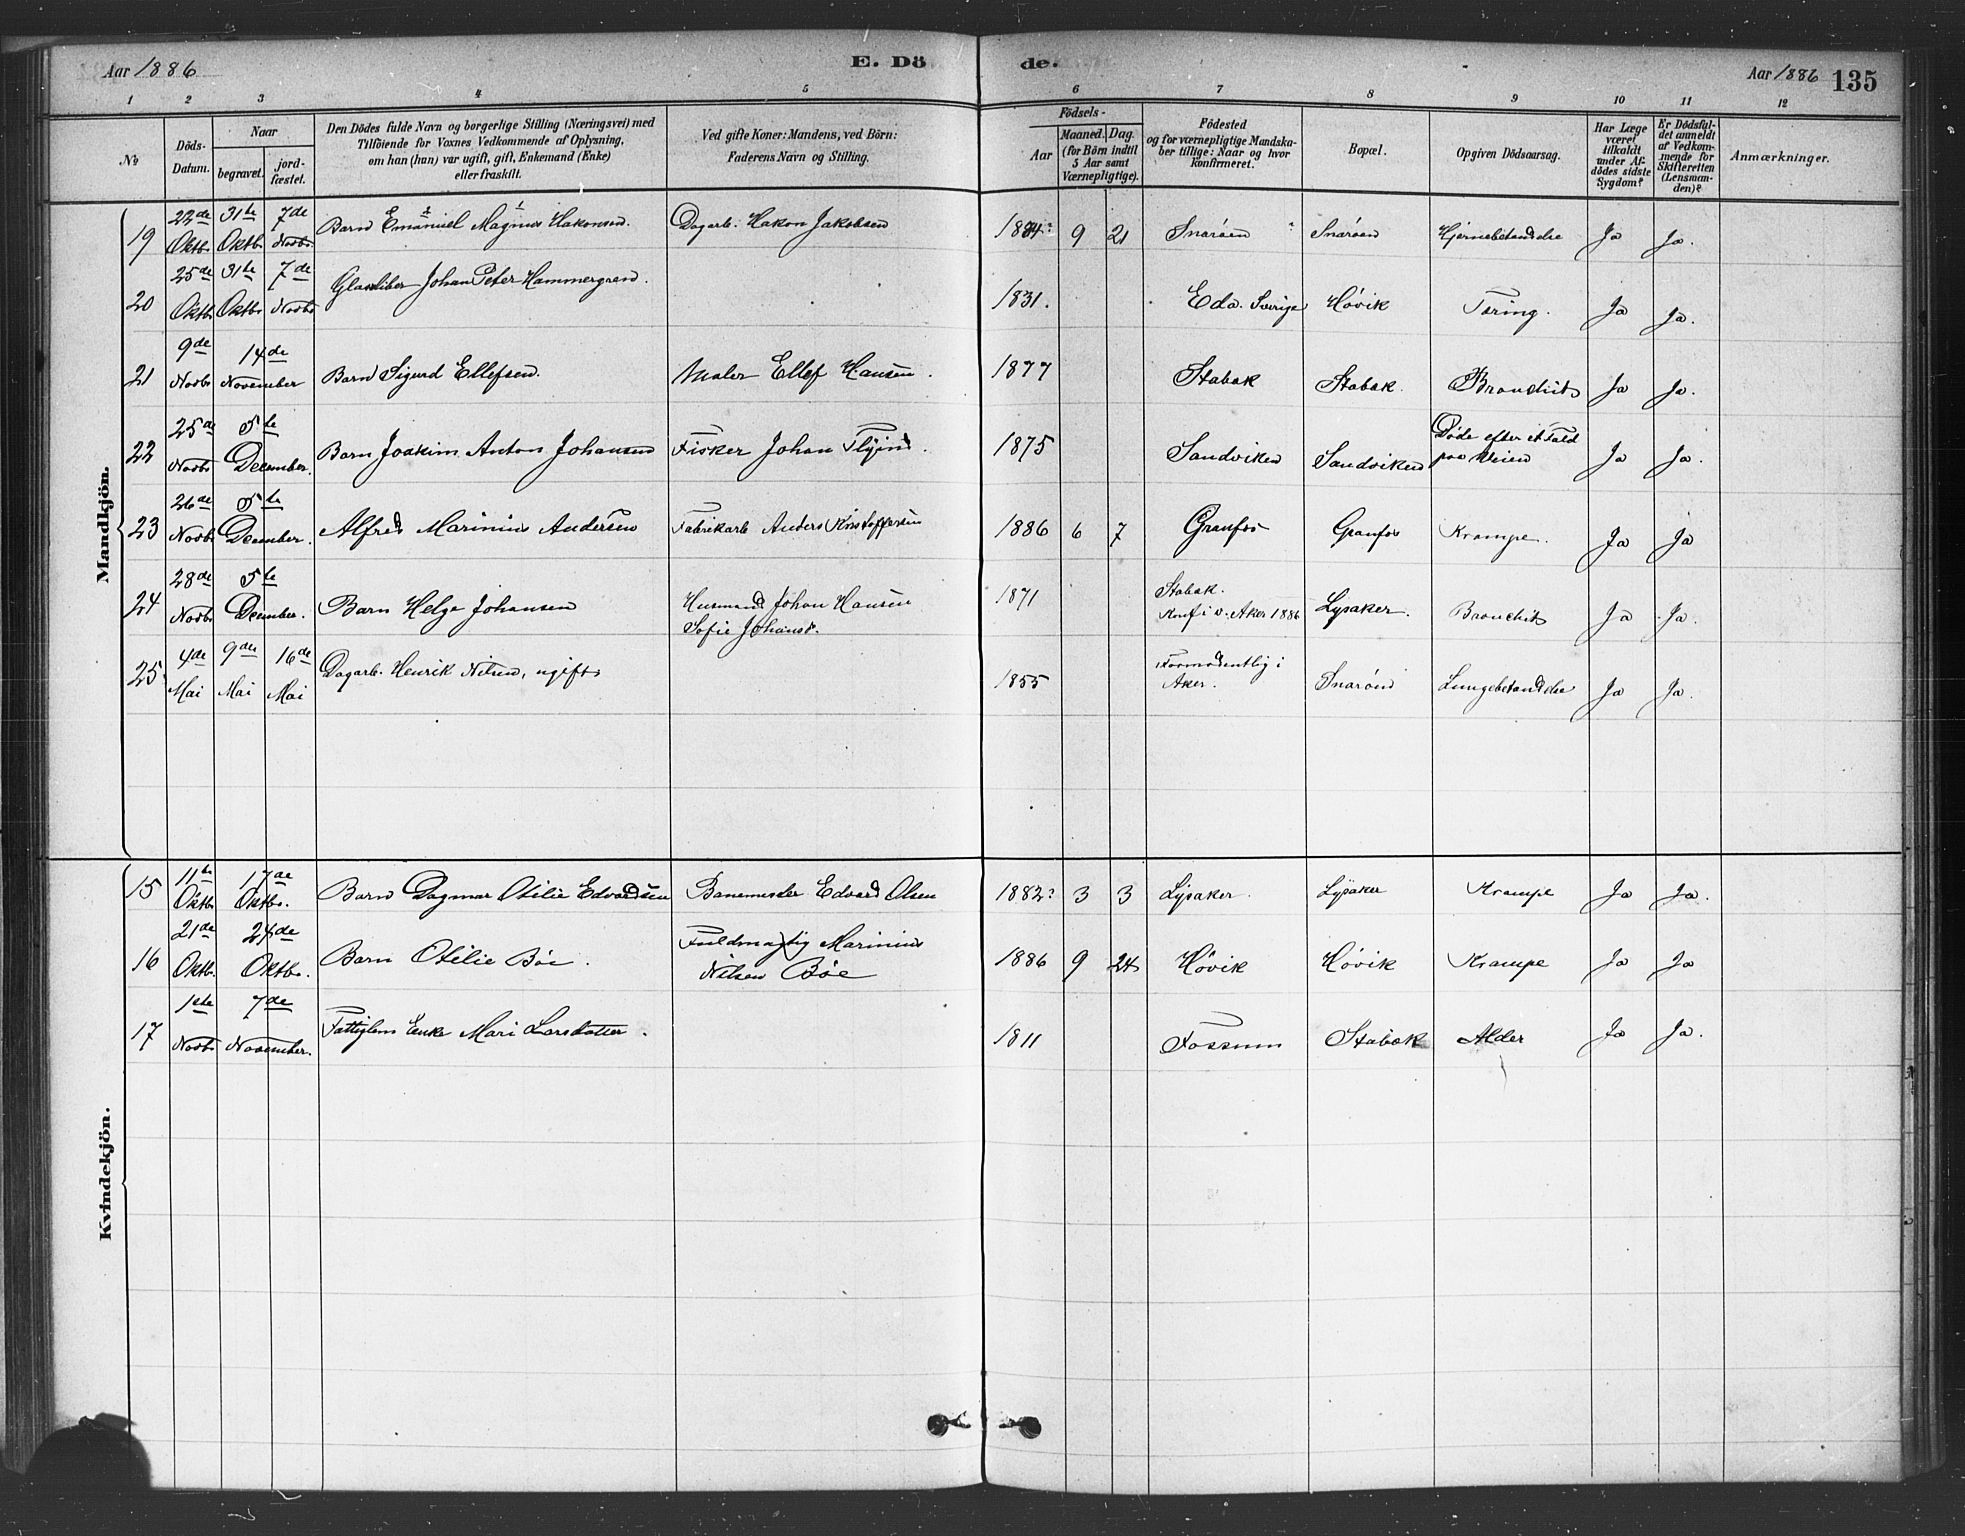 Aar 1886
E. Dö
de.
Aar 1886 135
1 2 3 4 5 6 7 8 9 10 11 12
№
Döds-
Datum.
Naar
begravet.
jord-
fæstet.
Den Dödes fulde Navn og borgerlige Stilling (Næringsvei) med
Tilföiende for Voxnes Vedkommende af Oplysning,
om han (hun) var ugift, gift, Enkemand (Enke)
eller fraskilt.
Ved gifte Koner: Mandens, ved Börn:
Faderens Navn og Stilling.
Födsels-
Aar
Maaned. Dag.
(for Börn indtil
5 Aar samt
Værnepligtige).
Födested
og for værnepligtige Mandska-
ber tillige: Naar og hvor
konfirmeret.
Bopæl.
Opgiven Dödsaarsag.
Har Læge
været
tilkaldt
under Af-
dödes sidste
Sygdom?
Er Dödsfal-
det anmeldt
af Vedkom-
mende for
Skifteretten
(Lensman-
den)?
Anmærkninger.
Mandkjön.
19 22de Oktbr 31te Oktbr 7de Novbr. Barn Emanuel Magnus Hakonsen Dagarb. Hakon Jakobsen 9 21 Snarøen Snarøen Hjernebetændelse Ja Ja.
20 25de Oktbr 31te Oktbr 7de Novbr Glassliber Johan Peter Hammergren. 1831. Eda. Sverige Høvik Tæring. Ja Ja.
21 9de Novbr 14de November Barn Sigurd Ellefsen. Maler Ellef Hansen. 1877 Stabæk Stabæk. Bronchit Ja Ja.
22 25de Novbr 5te December. Barn Joakim Anton Johansen Fisker Johan 1875 Sandviken Sandviken Døde efter et Fald
paa Veien Ja Ja.
23 26de Novbr 5te December. Alfred Marinius Andersen Fabrikarb Anders Kristoffersen 1886 6 7 Granfos Granfos Krampe. Ja Ja
24 28de Novbr 5te December. Barn Helge Johansen Husmand Johan Hansen
Sofie Johansd. 1871 Stabæk.
Konf i V. Aker 1886 Lysaker. Bronchit Ja Ja.
25 4de Mai 9de Mai 16de Mai Dagarb. Henrik Nilsen, ugift 1855 Formodentlig i
Aker. Snarøen Lungebetændelse Ja Ja.
Kvindekjön.
15 11te Oktbr 17de Oktbr. Barn Dagmar Otilie Edvardsen Banemester Edvard Olsen 1882 3 3 Lysaker. Lysaker Krampe Ja Ja.
16 21de Oktbr. 24de Oktbr. Barn Otilie Böe. Fuldmægtig Marinius
Nilsen Böe 1886 9 24 Høvik Høvik Krampe Ja Ja
17 1ste Novbr 7de November. Fattiglem Enke Mari Larsdatter. 1811 Fossum Stabæk Alder Ja Ja.